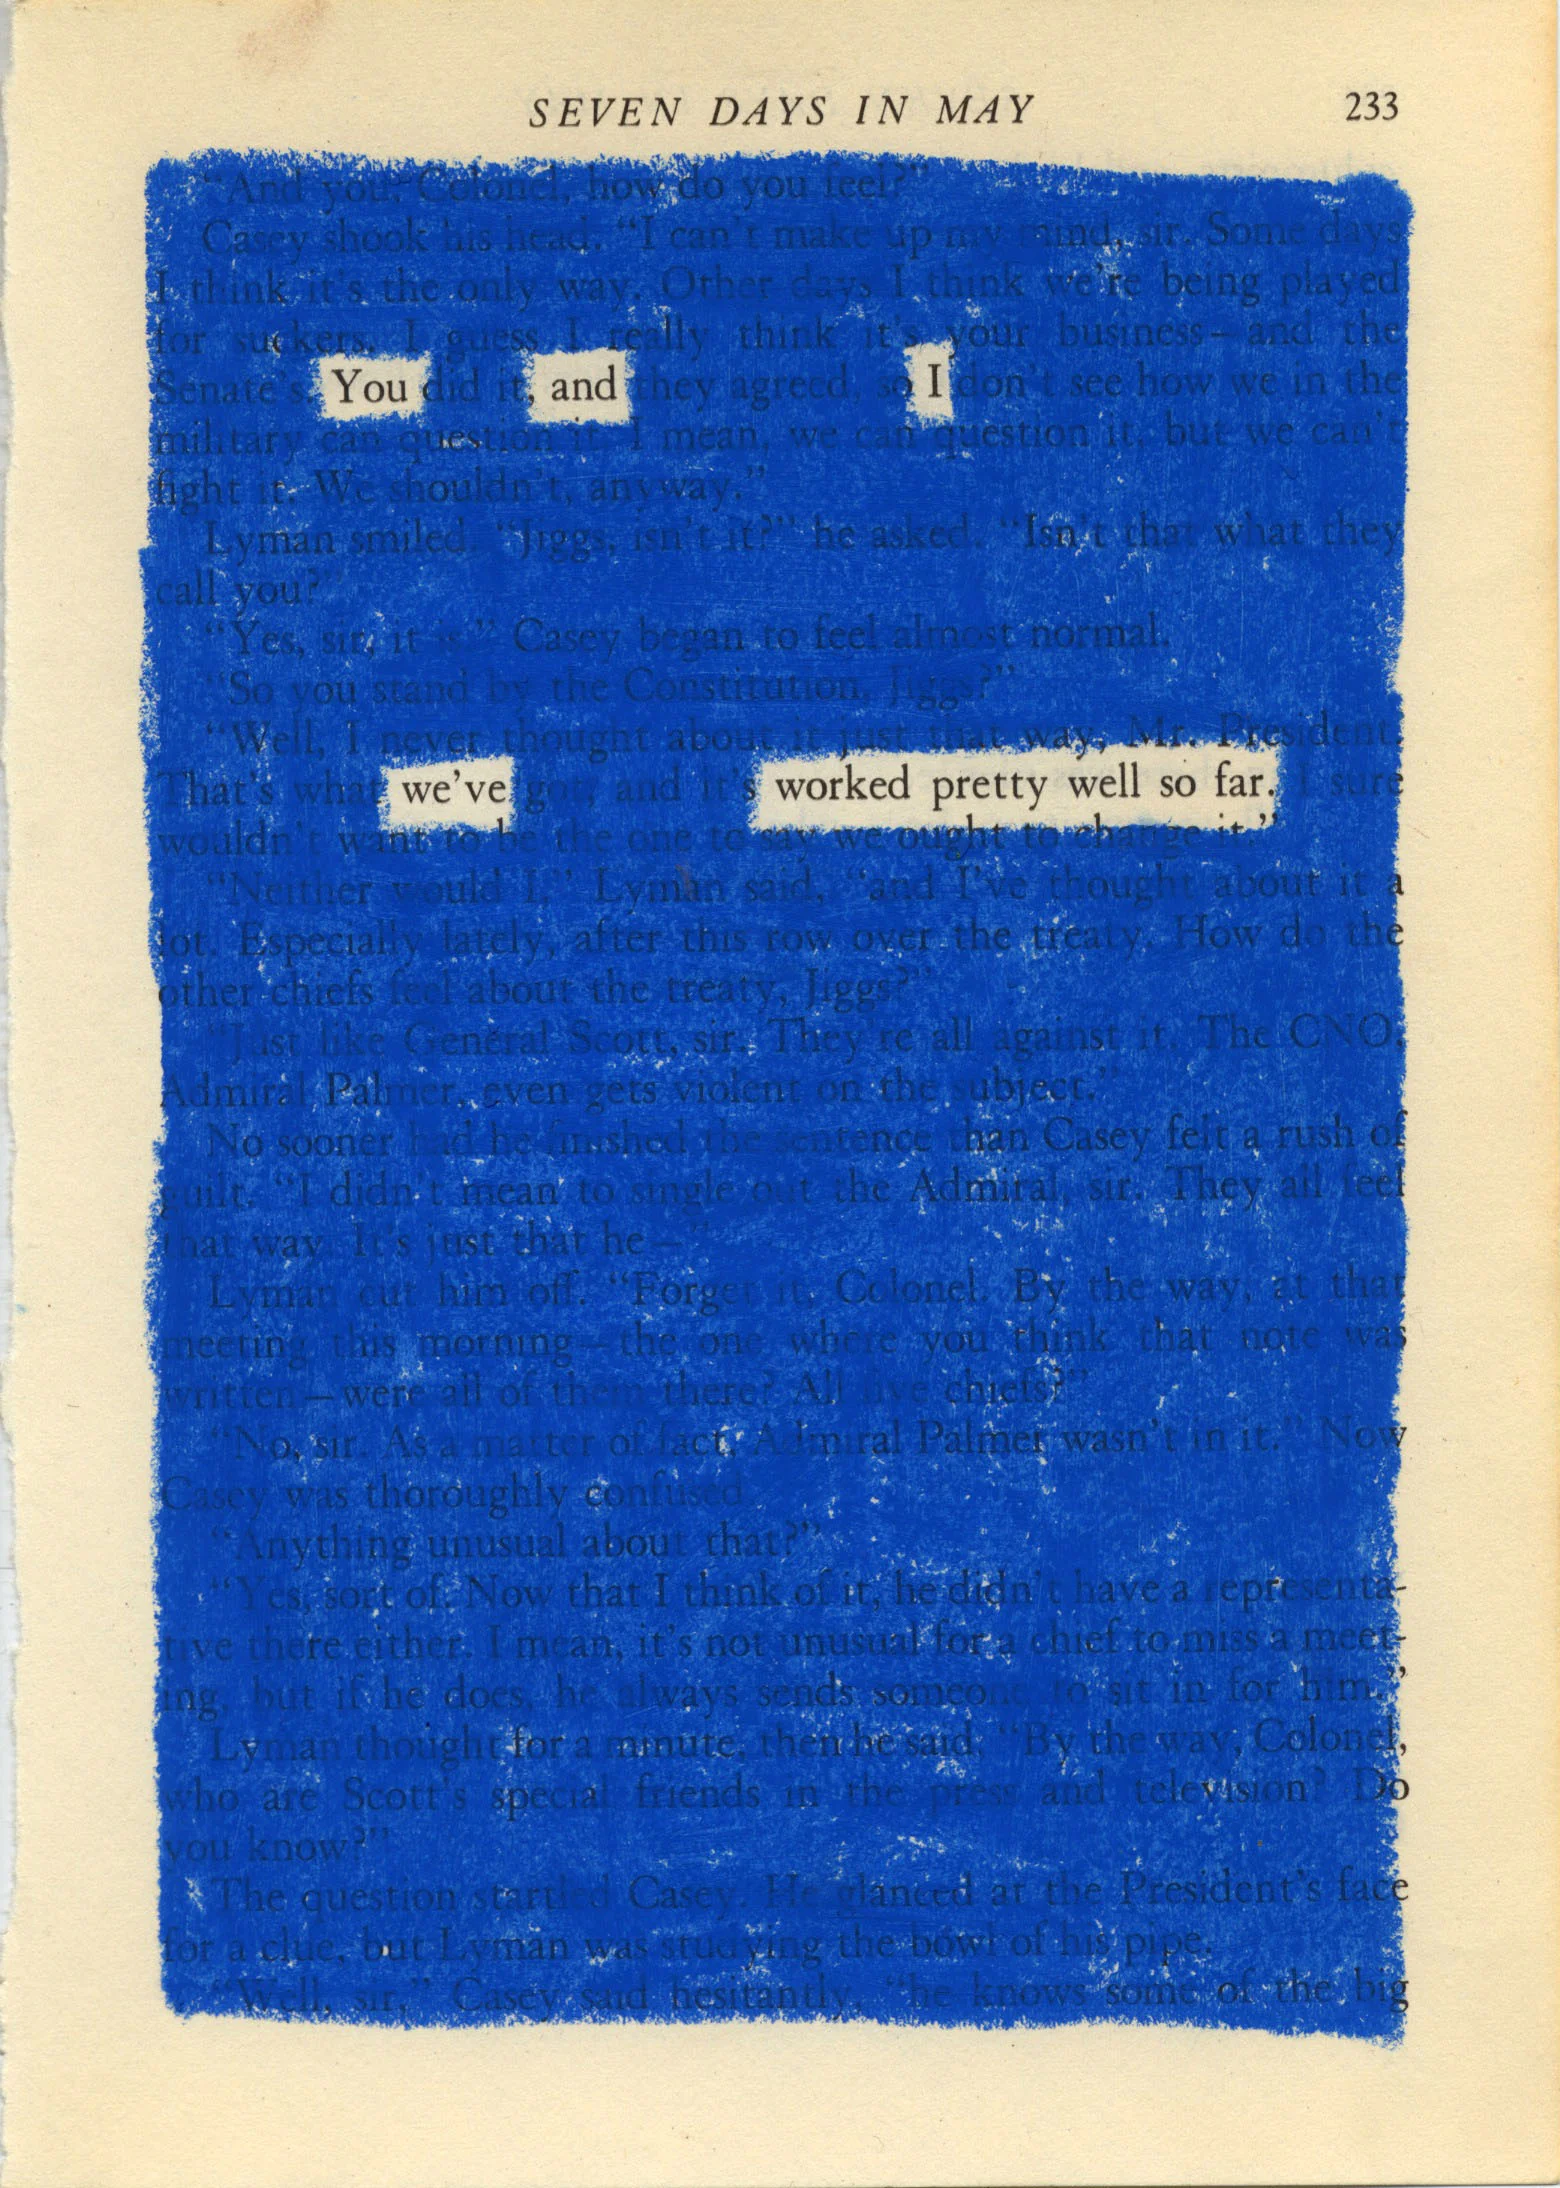 SEVEN DAYS IN MAY 233
"And you, Colonel, how do you feel?"
Casey shook his head. "I can't make up my mind, sir. Some days
I think it's the only way. Other days I think we're being played
for suckers. I guess I really think it's your business—and the
Senate's. You did it, and they agreed, so I don't see how we in the
military can question it. I mean, we can question it, but we can't
fight it. We shouldn't, anyway."
Lyman smiled. "Jiggs, isn't it?" he asked. "Isn't that what they
call you?"
"Yes, sir, it is." Casey began to feel almost normal.
"So you stand by the Constitution, Jiggs?"
"Well, I never thought about it just that way, Mr. President.
That's what we've got, and it's worked pretty well so far. I sure
wouldn't want to be the one to say we ought to change it."
"Neither would I," Lyman said, "and I've thought about it a
lot. Especially lately, after this row over the treaty. How do the
other chiefs feel about the treaty, Jiggs?"
"Just like General Scott, sir. They're all against it. The CNO,
Admiral Palmer, even gets violent on the subject."
No sooner had he finished the sentence than Casey felt a rush of
guilt. "I didn't mean to single out the Admiral, sir. They all feel
that way. It's just that he—"
Lyman cut him off. "Forget it, Colonel. By the way, at that
meeting this morning—the one where you think that note was
written—were all of them there? All five chiefs?"
"No, sir. As a matter of fact, Admiral Palmer wasn't in it." Now
Casey was thoroughly confused.
"Anything unusual about that?"
"Yes, sort of. Now that I think of it, he didn't have a representa-
tive there either. I mean, it's not unusual for a chief to miss a meet-
ing, but if he does, he always sends someone to sit in for him."
Lyman thought for a minute, then he said: "By the way, Colonel,
who are Scott's special friends in the press and television? Do
you know?"
The question startled Casey. He glanced at the President's face
for a clue, but Lyman was studying the bowl of his pipe.
"Well, sir," Casey said hesitantly, "he knows some of the big